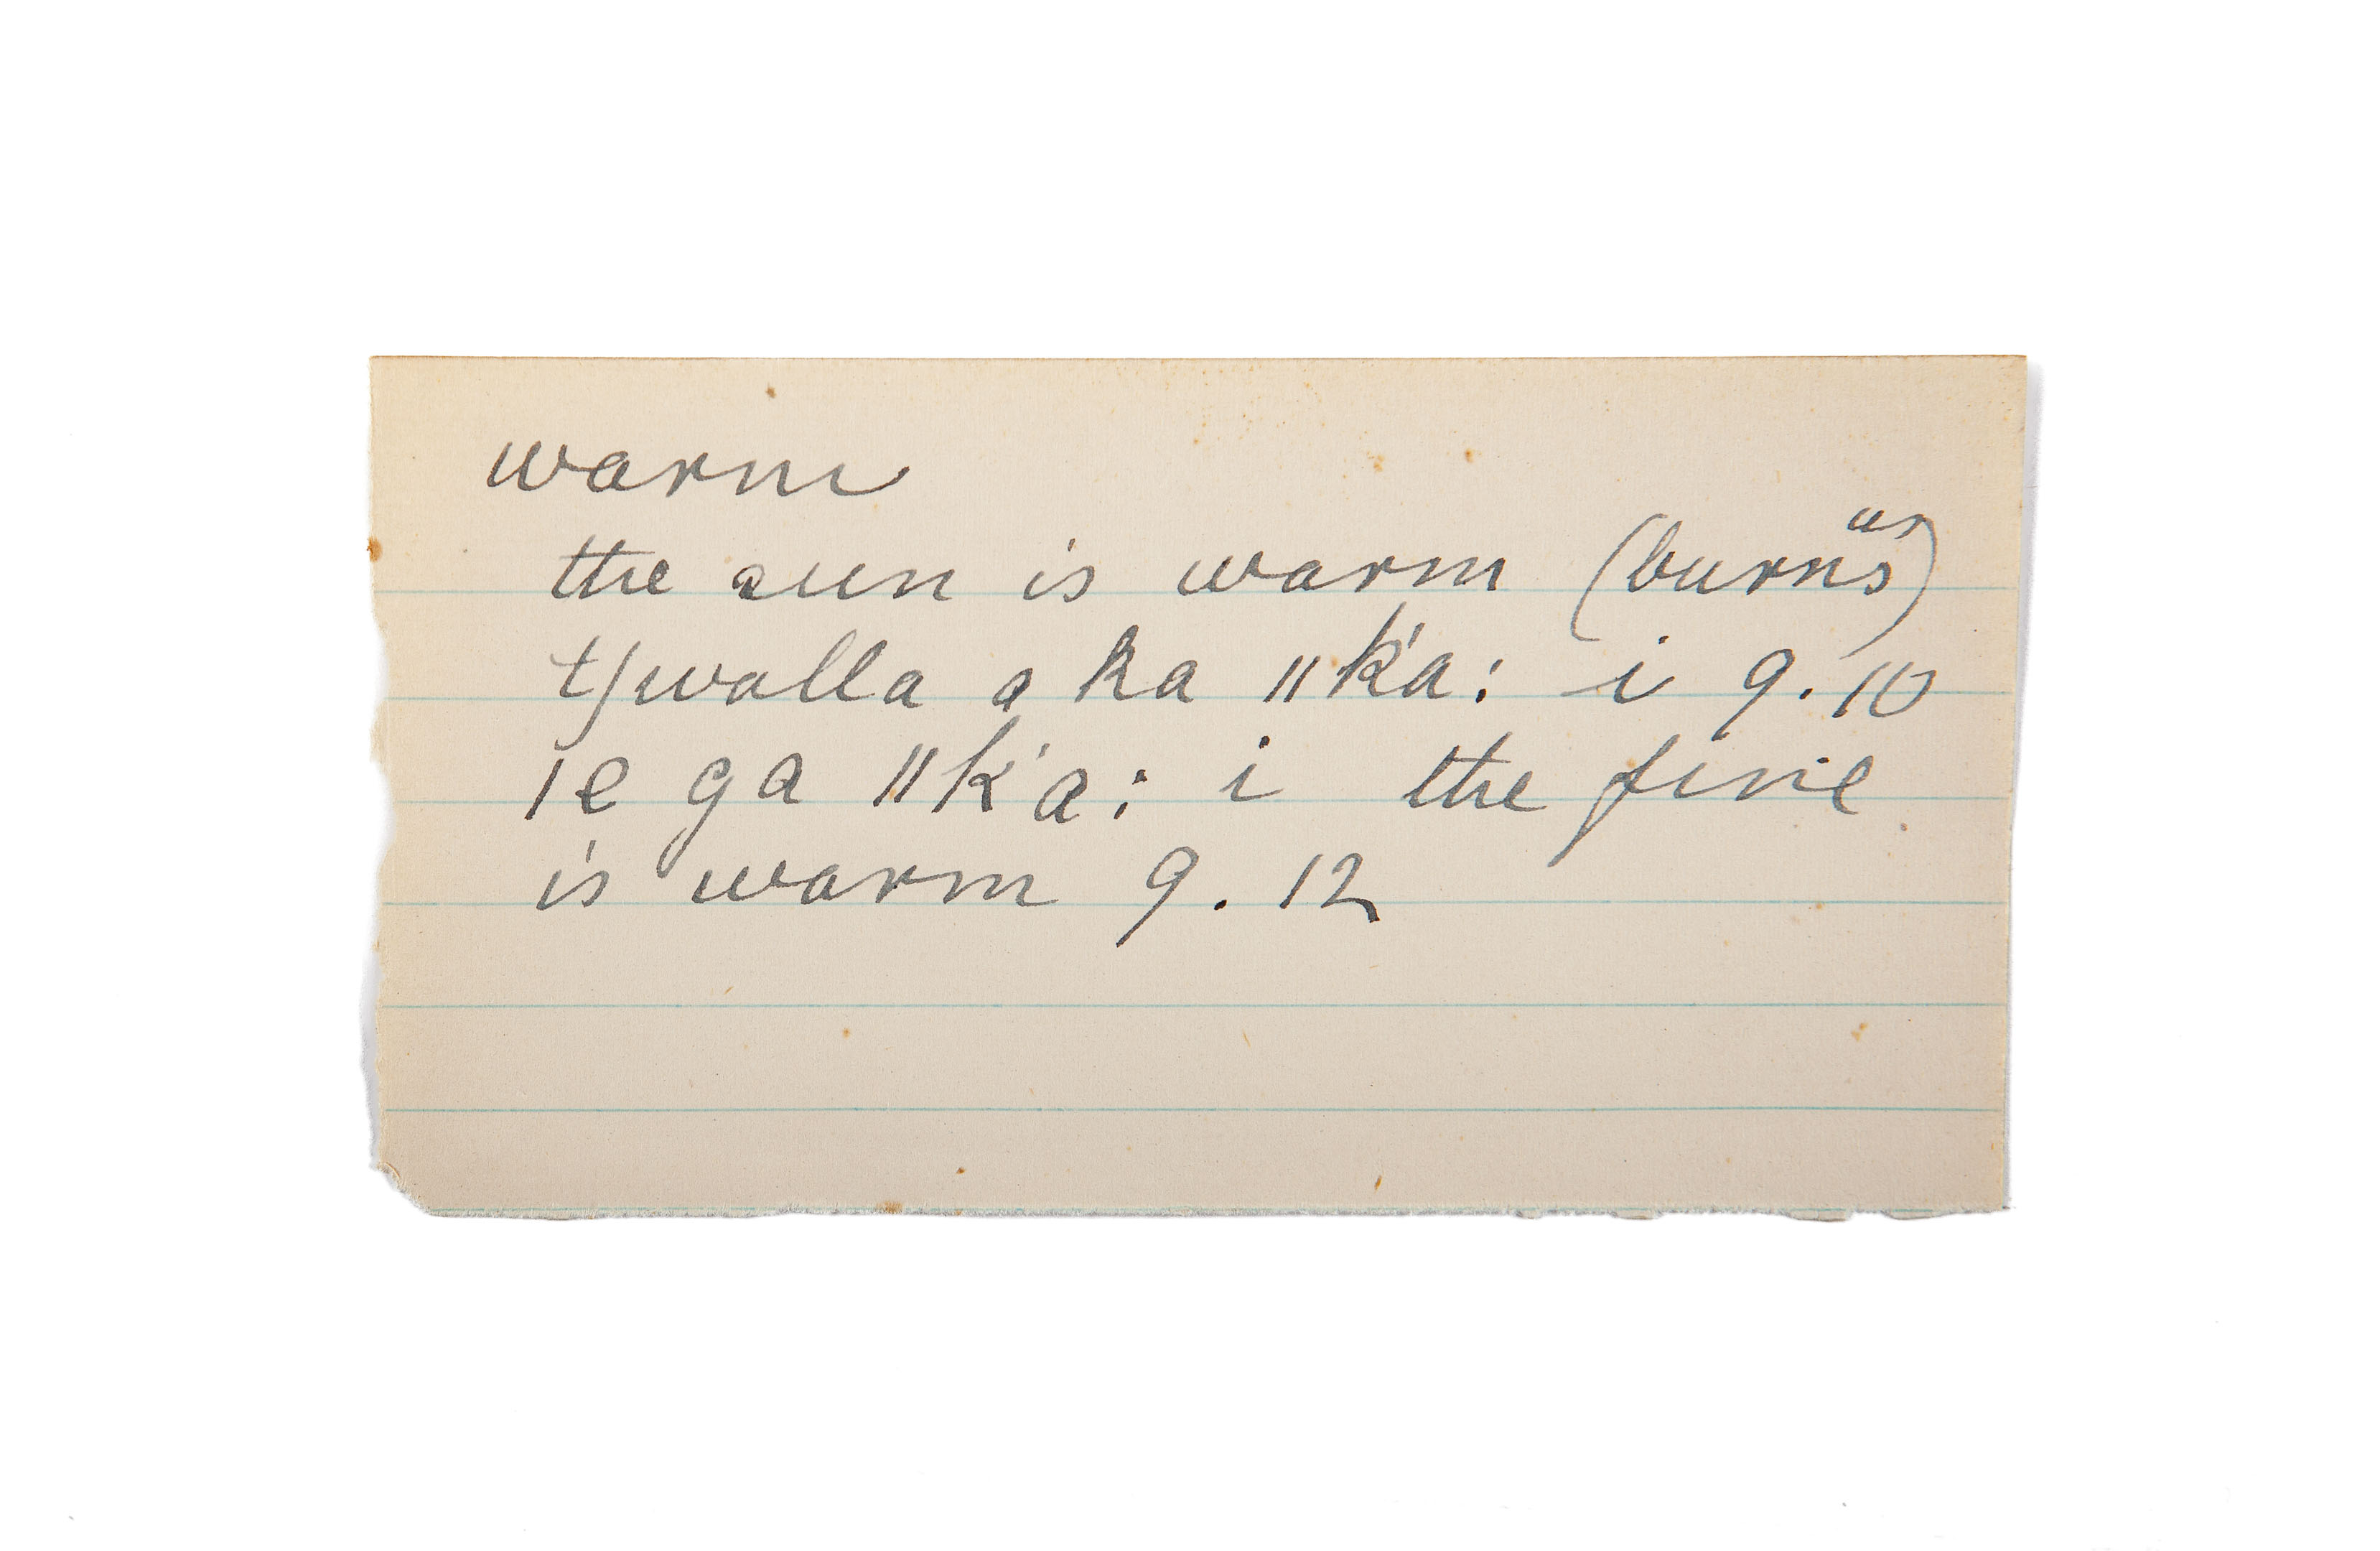 warm
the sun is warm (burns us)
tʃwalla a ka ǁk'a: i 9.10
ǀe ga ǁk'a: i the fire
is warm 9.12